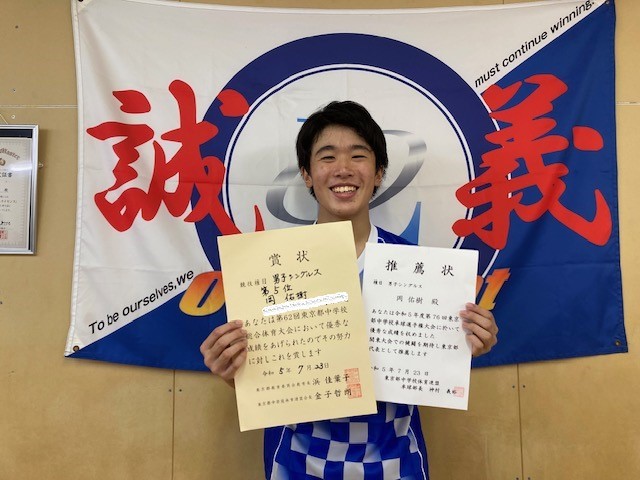 must continue winning.
誠
義
To be ourselves, we
賞状
競技種目 男子シングルス
第5位
岡 佑樹
あなたは第62回東京都中学校
総合体育大会において優秀な
成績をあげられたのでその努力
に対しこれを賞します
令和 5年 7月 23日
金子哲
推薦状
種目 男子シングルス
岡 佑樹 殿
あなたは令和5年度第76回東京
都中学校卓球選手権大会に於いて
優秀な成績を収めました
関東大会での健闘を期待し東京都
代表として推薦します
令和5年7月23日
東京都中学校体育連盟
卓球部長 神村